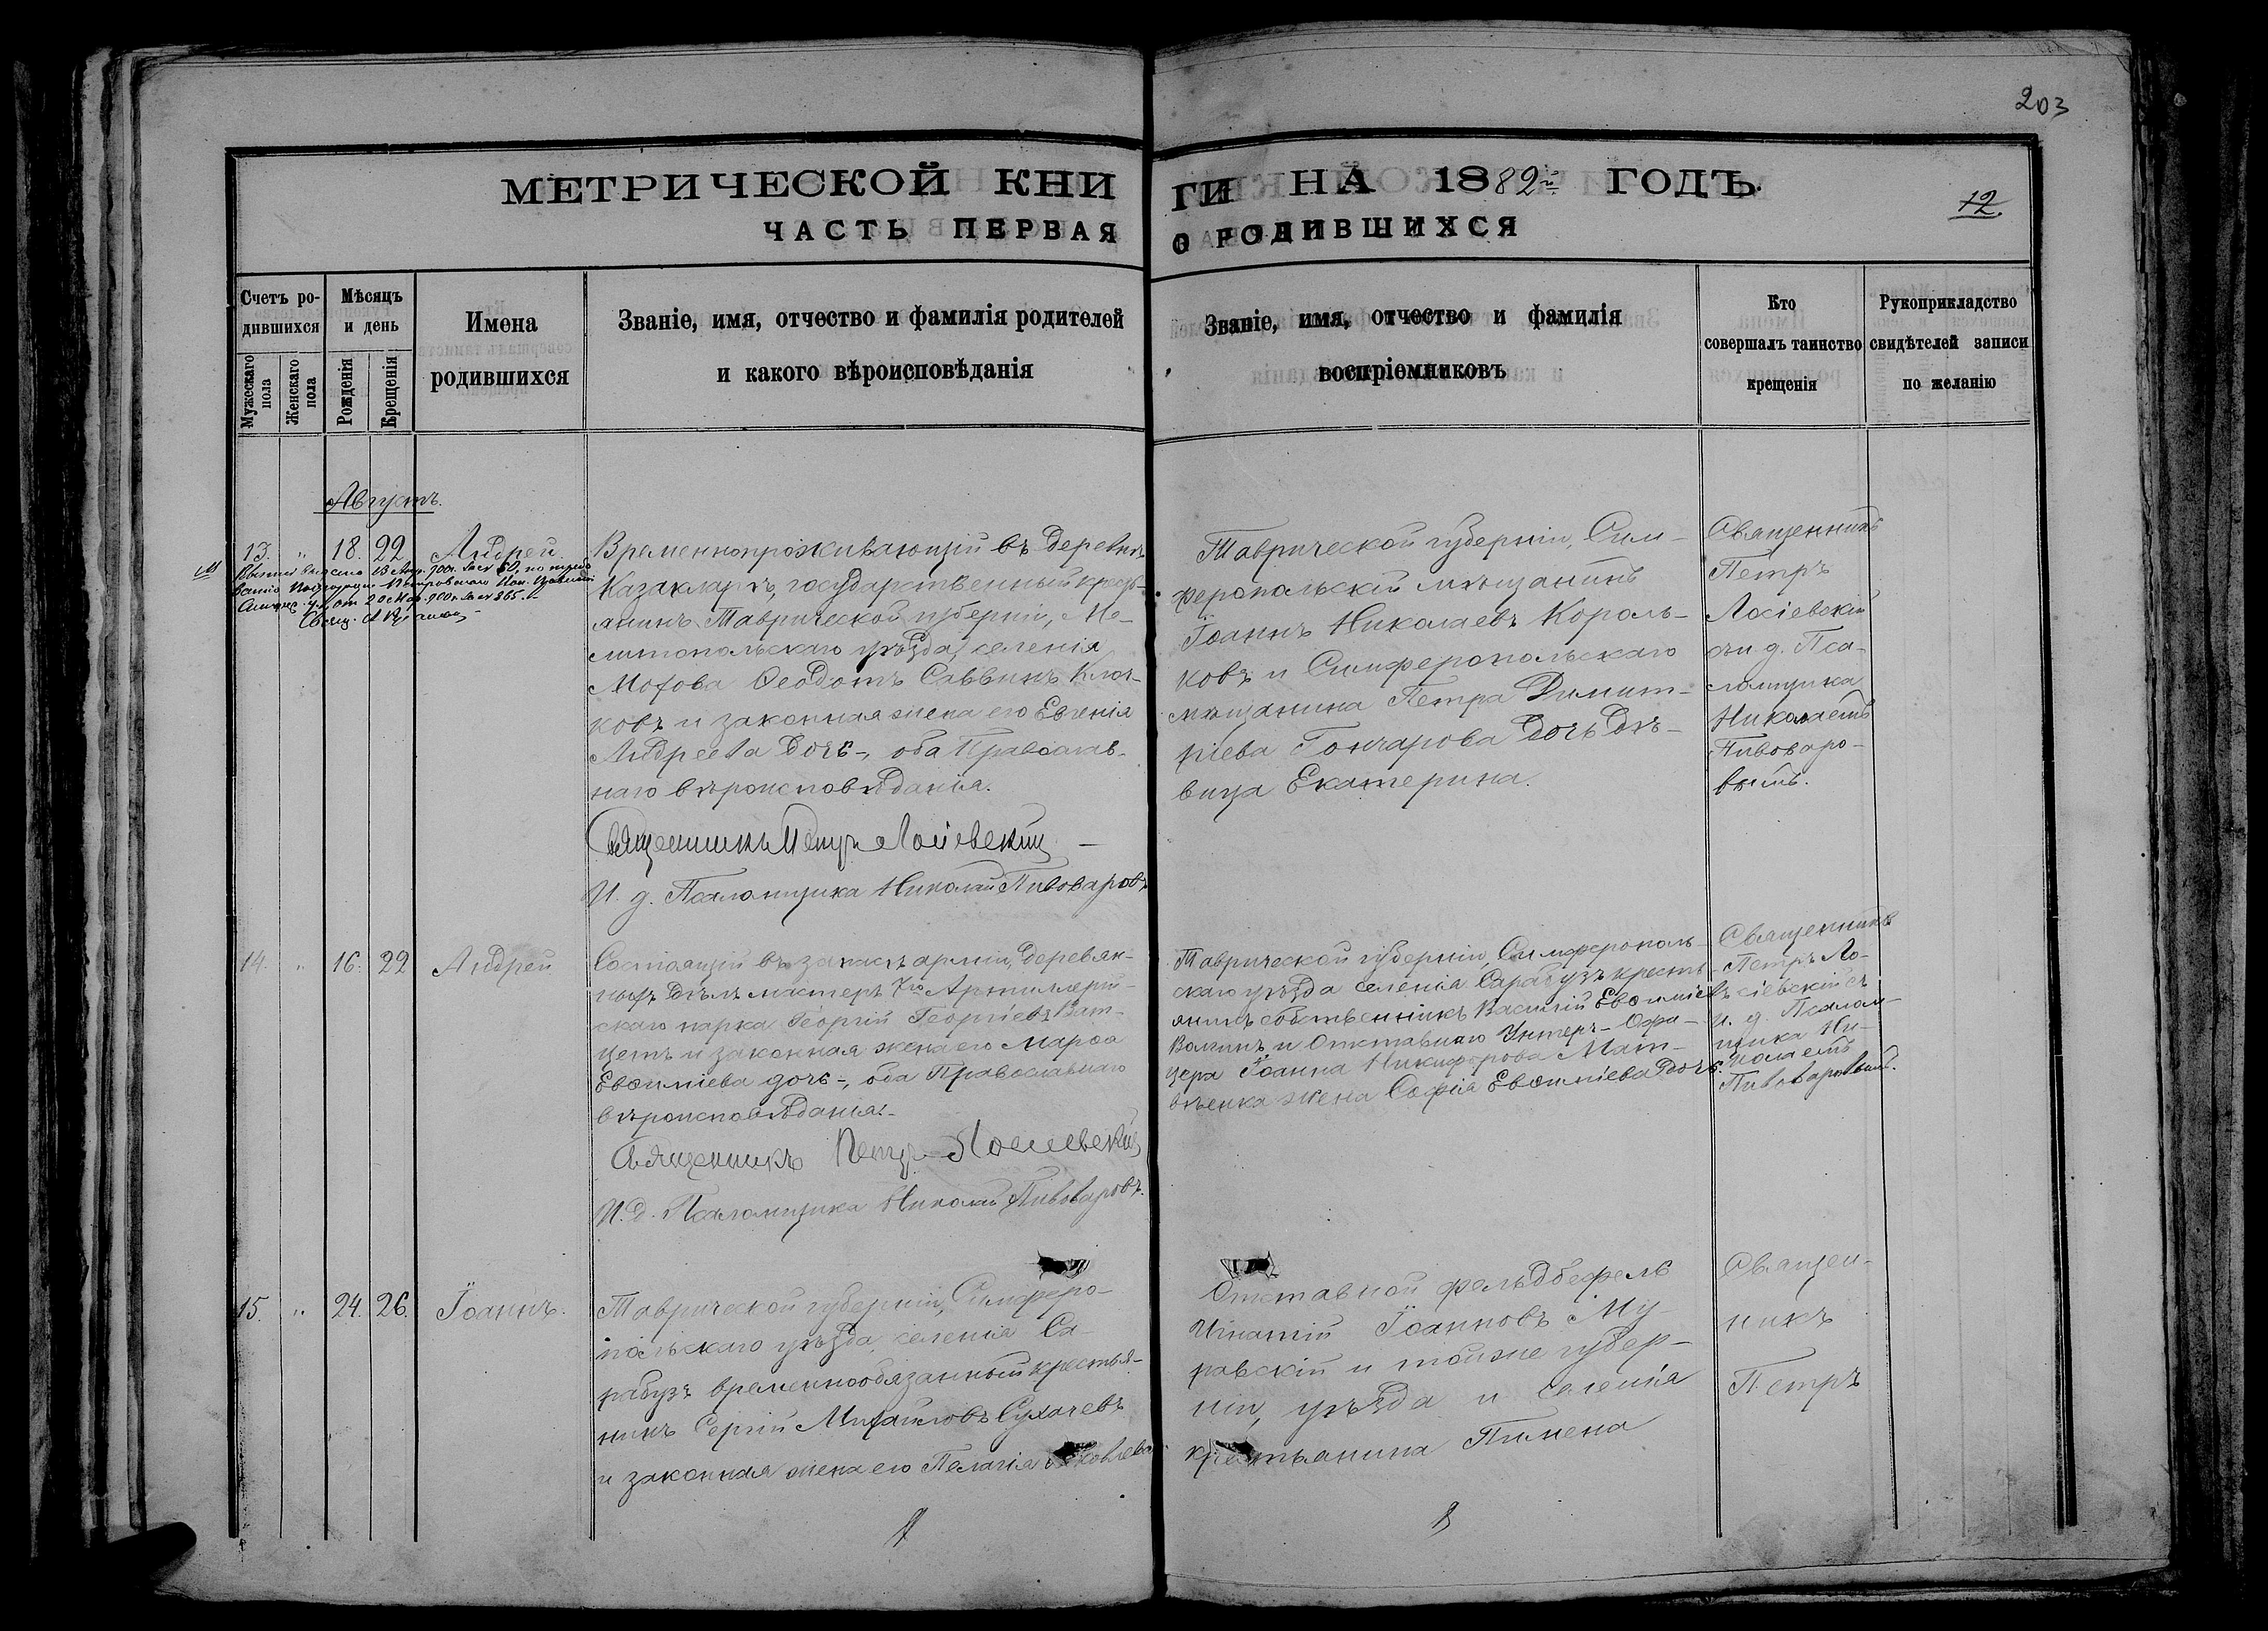 203
МЕТРИЧЕСКОЙ КНИГИ НА 1882й ГОДЪ.
12.
ЧАСТЬ ПЕРВАЯ О РОДИВШИХСЯ
Счетъ родившихся
Мужескаго пола
Женскаго пола
Мѣсяцъ и день
Рожденія
Крещенія
Имена родившихся
Званіе, имя, отчество и фамилія родителей и какого вѣроисповѣданія
Званіе, имя, отчество и фамилія воспріемниковъ
Кто совершалъ таинство крещенія
Рукоприкладство свидѣтелей записи по желанію
Августъ.
13. " 18. 22. Андрей.
Временнопроживающій въ деревнѣ
Казакларъ, государственный кресть-
янинъ Таврической губерніи, Ме-
литопольскаго уѣзда, селенія
Ѳеодотъ Саввинъ Клоч-
ковъ и законная жена его Евгенія
Андреева дочь-, оба Православ-
наго вѣроисповѣданія.
Священникъ Петръ Лосіевскій
И. д. Псаломщика Николай Пивоваровъ
Таврической губерніи, Сим-
феропольскій мѣщанинъ
Іоаннъ Николаевъ Король-
ковъ и Симферопольскаго
мѣщанина Петра Димит-
ріева Гончарова дочь дѣ-
вица Екатерина.
Священникъ
Петръ
Лосіевскій
съ и. д. Пса-
ломщика
Николаемъ
Пивоваро-
вымъ.
14. " 16. 22 Андрей
Состоящій въ запасѣ арміи, деревян-
ныхъ дѣлъ мастеръ 7го Артиллерій-
скаго парка Георгій Георгіевъ
и законная жена его Марѳа
Евѳиміева дочь-, оба Православнаго
вѣроисповѣданія.-
Священникъ Петръ Лосіевскій
И. д. Псаломщика Николай Пивоваровъ.
Таврической губерніи, Симферополь-
скаго уѣзда селенія Сарабузъ кресть-
янинъ собственникъ Василій Евѳиміевъ
Волгинъ и Отставнаго Унтеръ-Офи-
цера Іоанна Никифорова Мат-
вѣенка жена Софія Евѳиміева дочь.
Священникъ
Петръ Ло-
сіевскій съ
и. д. Псалом-
щика Ни-
колаемъ
Пивоваровымъ.
15. " 24. 26. Іоаннъ.
Таврической губерніи, Симферо-
польскаго уѣзда, селенія Са-
рабузъ временнообязанный крестья-
нинъ Сергій Михайловъ Сухачевъ
и законная жена его Пелагія Яковлева
Отставной фельдфебель
Игнатій Іоанновъ Му-
равскій и тойже губер-
ніи, уѣзда и селенія
крестьянина Пимена
Священ-
никъ
Петръ